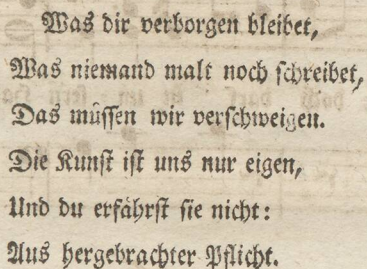 Was dir verborgen bleibet,
Was niemand malt noch schreibet,
Das müssen wir verschweigen.
Die Kunst ist uns nur eigen,
Und du erfährst sie nicht:
Aus hergebrachter Pflicht.